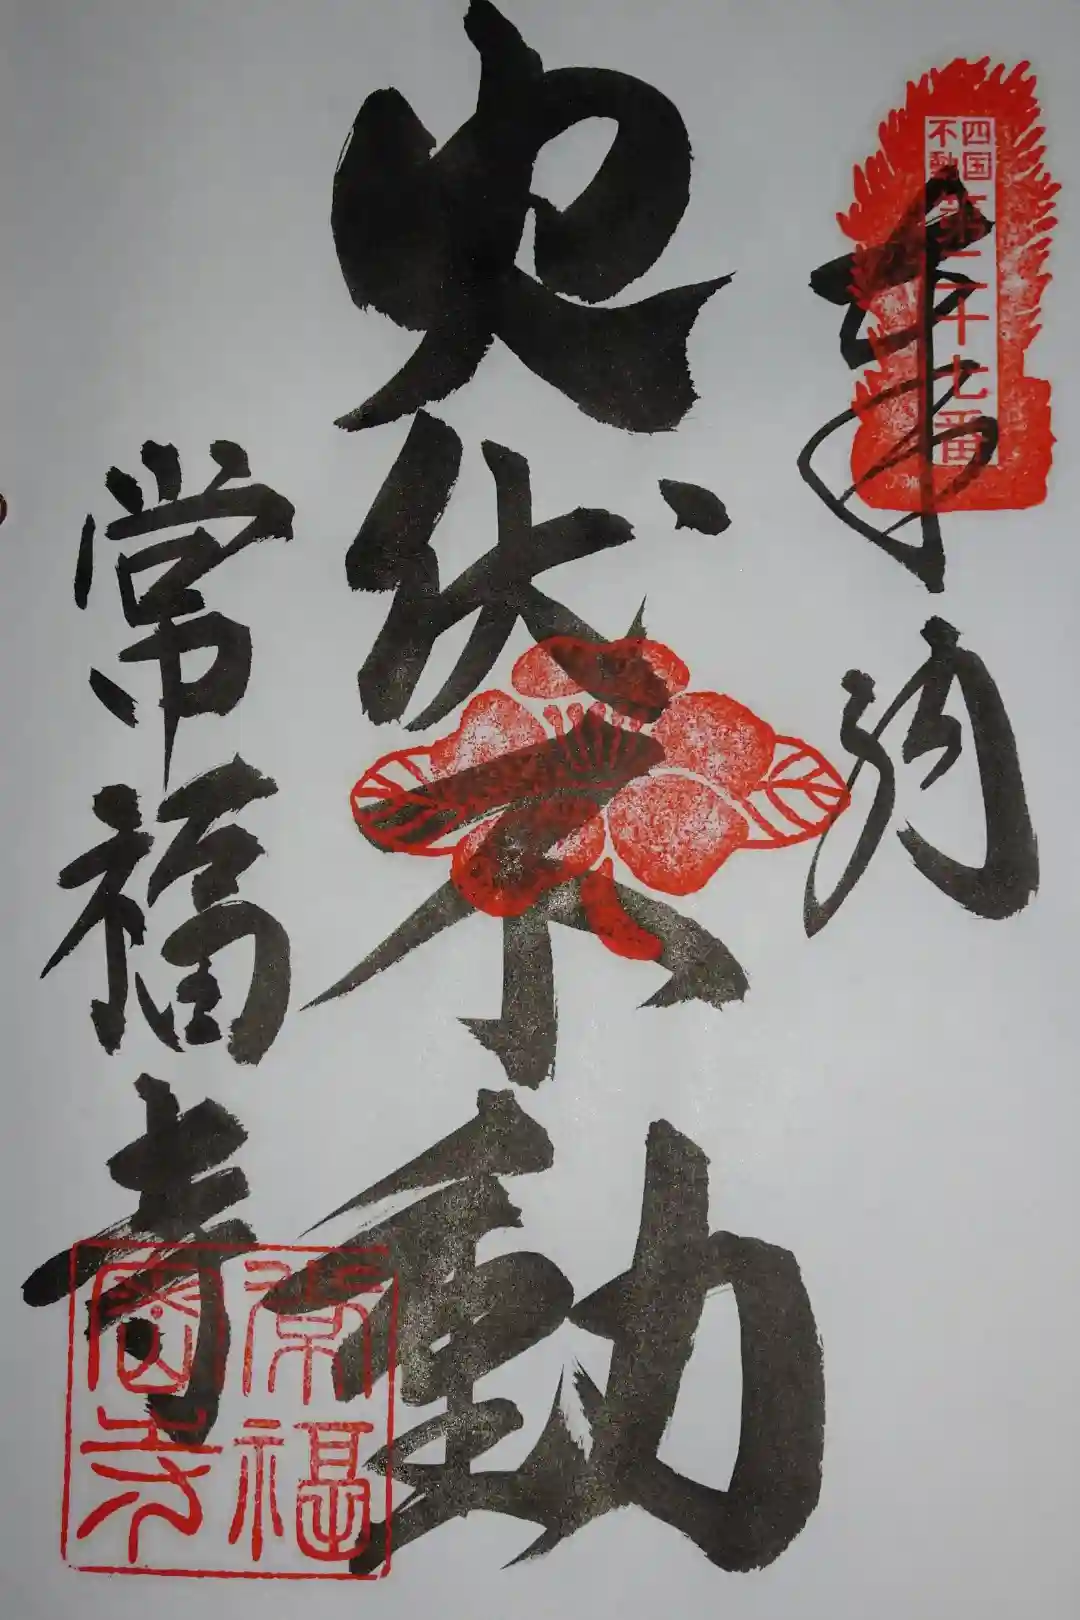 四国
不動
第二十七番
奉納
火伏不動
常福寺
常福
密寺